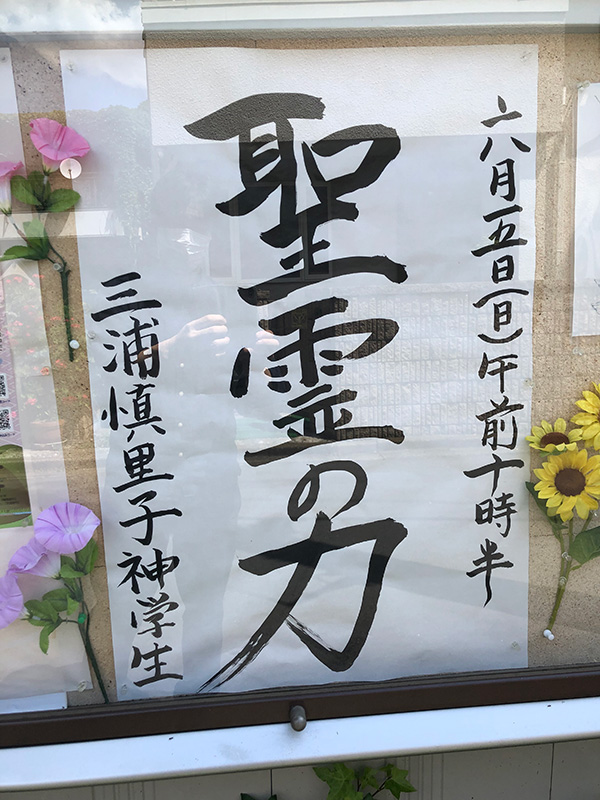 六月五日(日)午前十時半
聖霊の力
三浦慎里子神学生